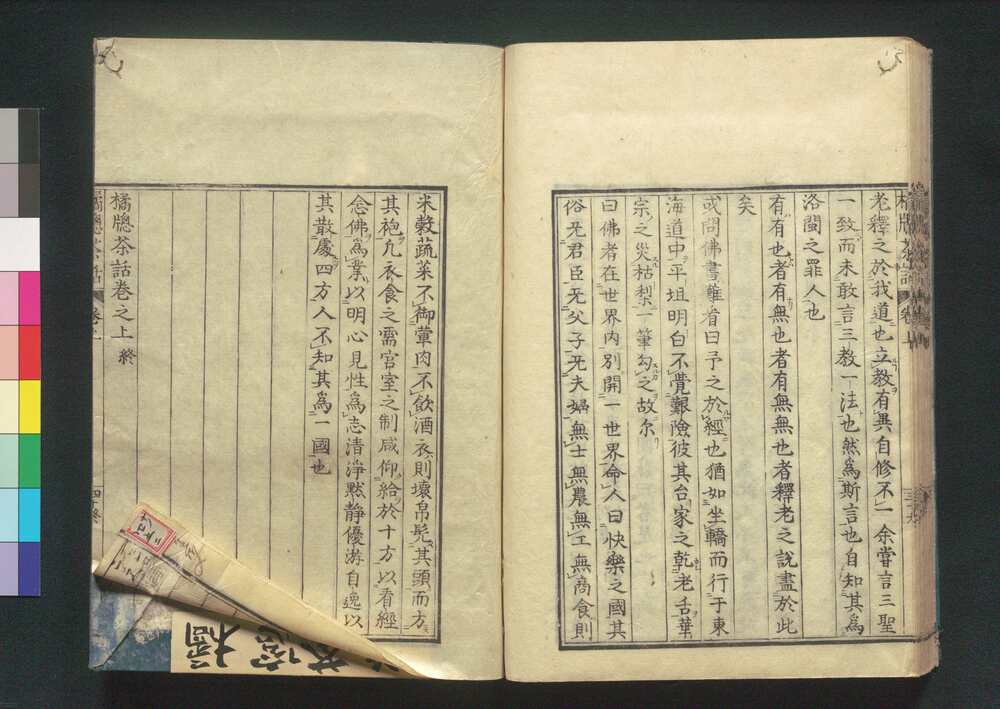 老釋之於我道也立教有異自修不一余嘗言三聖
一致而未敢言三教一法也然爲斯言也自知其爲
洛閩之罪人也
有有也者有無也者有無無也者釋老之說盡於此
矣
或問佛書難看曰予之於經也猶如坐轎而行于東
海道中平坦明白不覺艱險彼其台家之乾老舌華
宗之災枯梨一筆勾之故尓
曰佛者在世界内別開一世界命人曰快樂之國其
俗旡君臣旡父子旡夫婦無士無農無工無商食則
米穀蔬菜不御葷肉不飲酒衣則壞帛髡其頭而方
其袍凡衣食之需宮室之制咸仰給於十方以看經
念佛爲業以明心見性爲志清淨默靜優游自逸以
其散處四方人不知其爲一國也
橘牕茶話卷之上 終